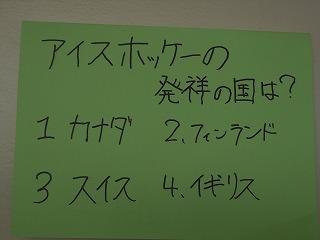 アイスホッケーの
発祥の国は?
1 カナダ 2、フィンランド
3 スイス 4、イギリス